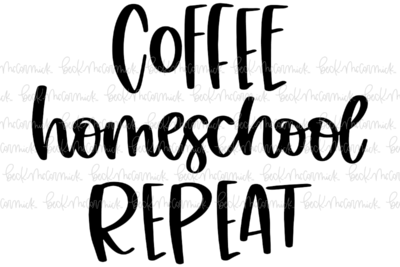 COFFEE
homeschool
REPEAT